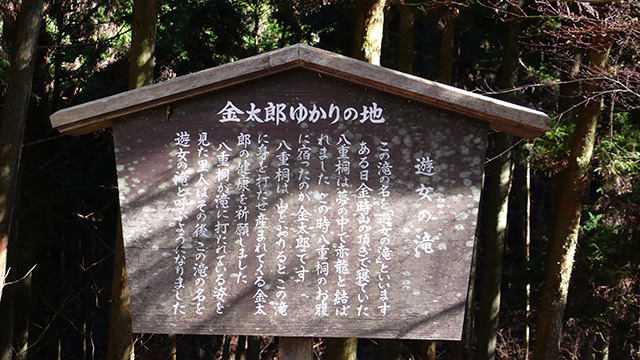 金太郎ゆかりの地
遊女の滝
この滝の名を 遊女の滝といいます
ある日金時山の頂きで寝ていた
八重桐は夢の中で赤龍と結ば
れました この時八重桐のお腹
に宿ったのが金太郎です
八重桐は 山をおりると この滝
に身を打たせ産まれてくる金太
郎の健康を祈願しました
八重桐が滝に打たれている姿を
見た里人はその後 この滝の名を
遊女の滝と呼ぶようになりました